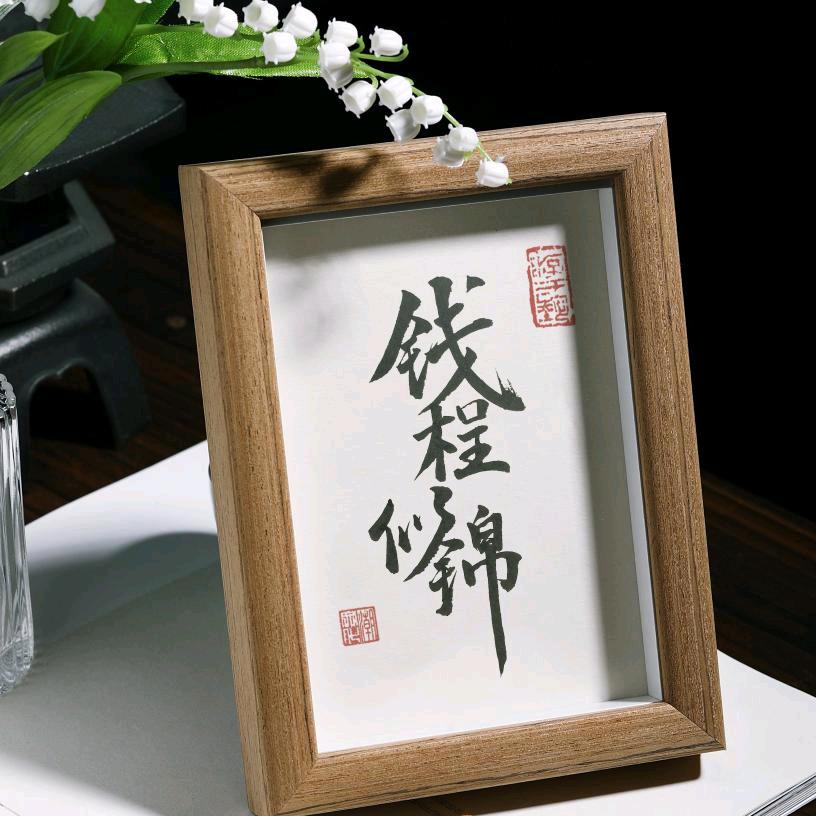 钱程似锦